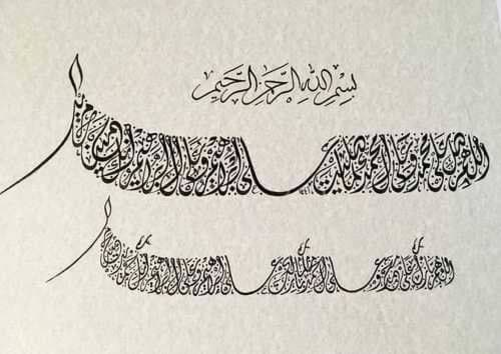 بِسْمِ اللهِ الرَّحْمٰنِ الرَّحِيمِ
اللهم صل على محمد وعلى آل محمد كما صليت على إبراهيم وعلى آل إبراهيم إنك حميد مجيد
اللهم بارك على محمد وعلى آل محمد كما باركت على إبراهيم وعلى آل إبراهيم إنك حميد مجيد